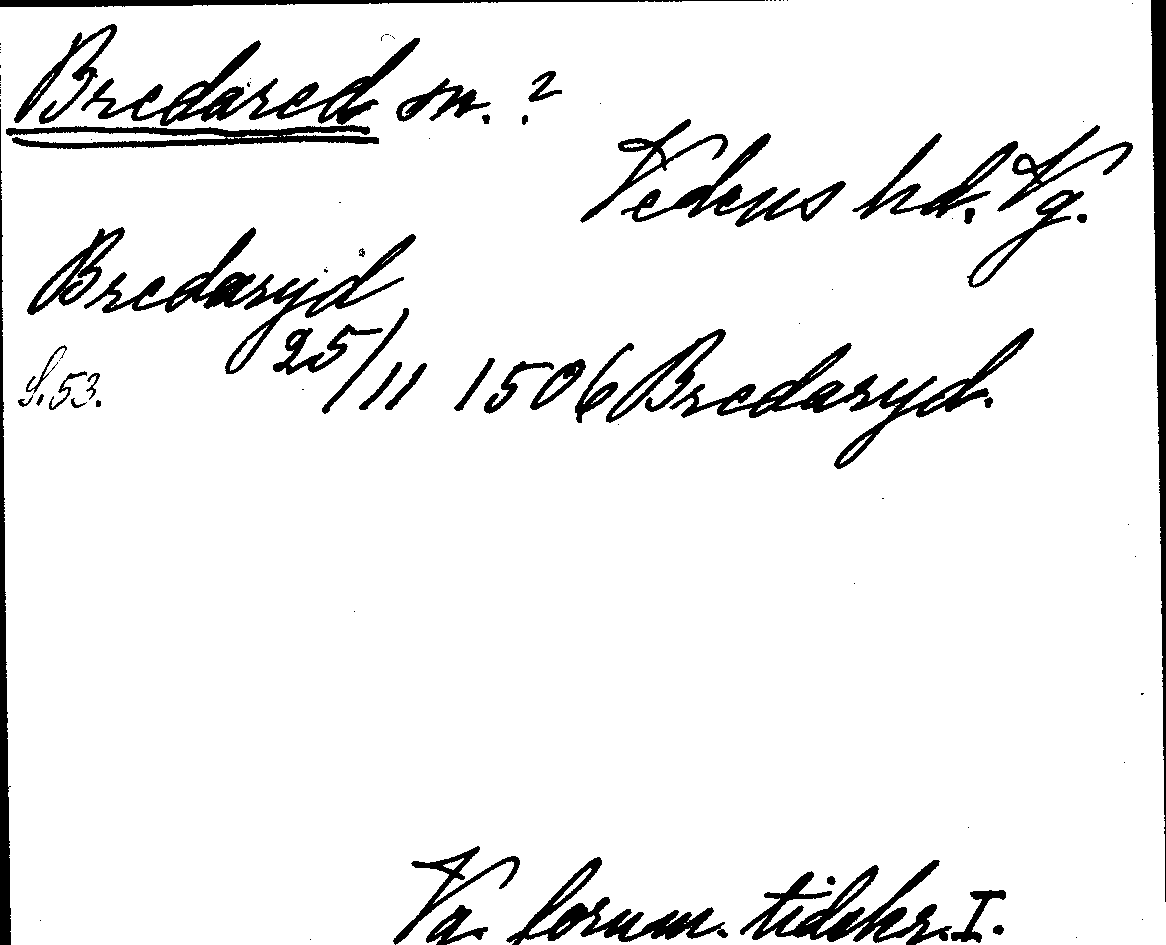 Bredared sn. ?
Vedens hd. Vg.
Bredaryd
25/11 1506 Bredaryd.
S. 53.
Vg. fornm. tidskr. I.